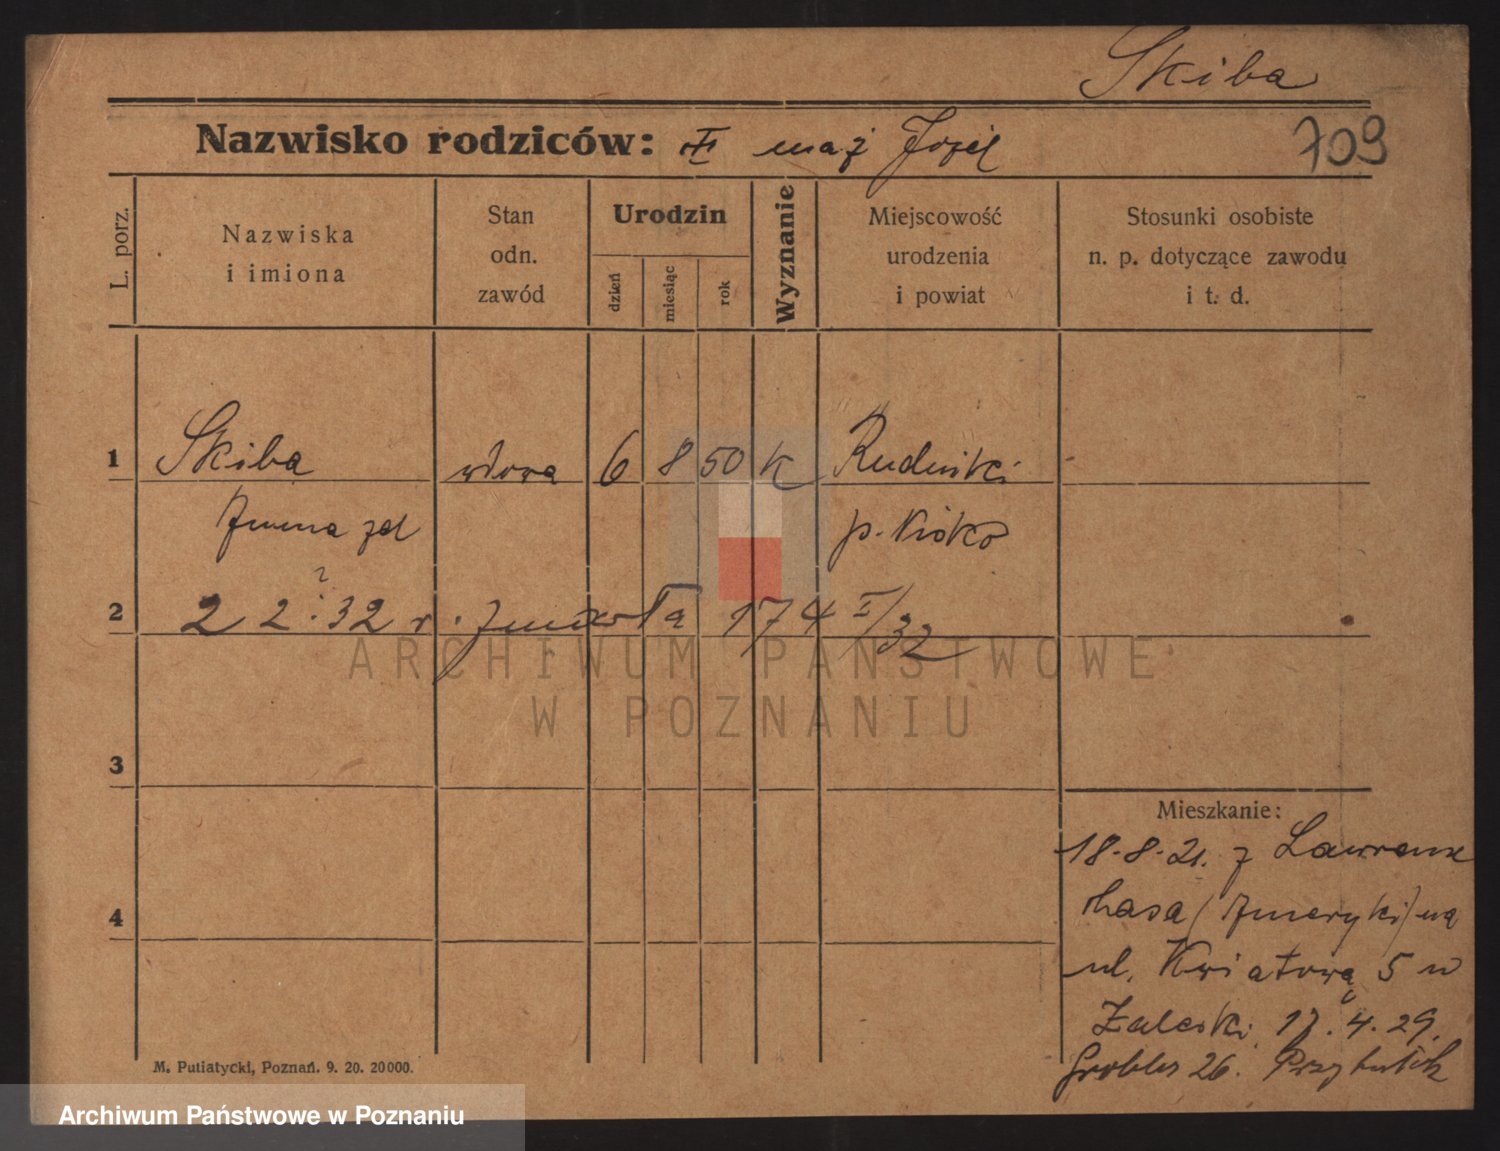 Skiba
Nazwisko rodziców: maż Józef
709
L. porz.
Nazwiska
i imiona
Stan
odn.
zawód
Urodzin
dzień
miesiąc
rok
Wyznanie
Miejscowość
urodzenia
i powiat
Stosunki osobiste
n. p. dotyczące zawodu
i t. d.
1 Skiba wdowa 6 8 50 K Rudniki
p.
2 2 2. 32 r. zmarła 174 I/32
3
4
Mieszkanie:
18.8.21. z Lawrence
(Ameryki) na
ul. Kwiatową 5 u
Zaleski. 17.4.29.
Grobla 26.
M. Putiatycki, Poznań. 9. 20. 20000.
ARCHIWUM PAŃSTWOWE
W POZNANIU
Archiwum Państwowe w Poznaniu